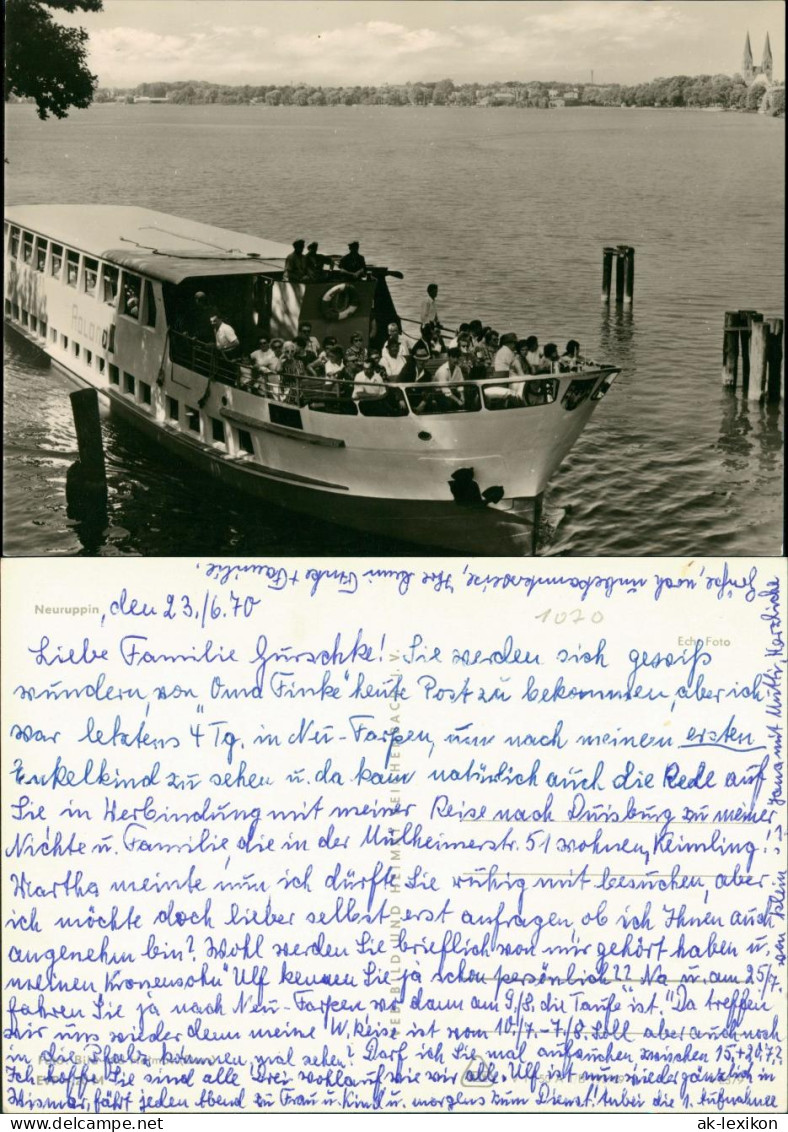 ROLAND
Grüße, noch unbekannterweise, Ihre Omi Finke + Familie.
Neuruppin, den 23./6.70
1020
Echt Foto
Liebe Familie Gurschke! Sie werden sich gewiß
wundern, von "Oma Finke" heute Post zu bekommen, aber ich
war letztens 4 Tg. in Neu-Farpen, um nach meinem ersten
Enkelkind zu sehen u. da kam natürlich auch die Rede auf
Sie in Verbindung mit meiner Reise nach Duisburg zu meiner
Nichte u. Familie, die in der Mülheimerstr. 51 wohnen, Keimling!
Martha meinte nun ich dürfte Sie ruhig mit besuchen, aber
ich möchte doch lieber selbst erst anfragen, ob ich Ihnen auch
angenehm bin? Wohl werden Sie brieflich von mir gehört haben u.
meinen "Kronensohn" Ulf kennen Sie ja schon persönlich?? Na u. am 25./7.
fahren Sie ja nach Neu-Farpen, wo dann am 9./8. die "Taufe" ist. Da treffen
wir uns wieder denn meine W. Reise ist vom 10./7.-7./8. Soll aber auch noch
in die Pfalz kommen, mal sehen? Darf ich Sie mal aufsuchen zwischen 15.+20./7.?
Ich hoffe Sie sind alle drei wohlauf wie wir alle. Ulf ist nun wieder gänzlich in
Wismar, fährt jeden Abend zu Frau u. Kind u. morgens zum Dienst! Anbei die 1. Aufnahme
von klein Jana mit Mutti, Herzliche
ak-lexikon
ak-lexikon.com